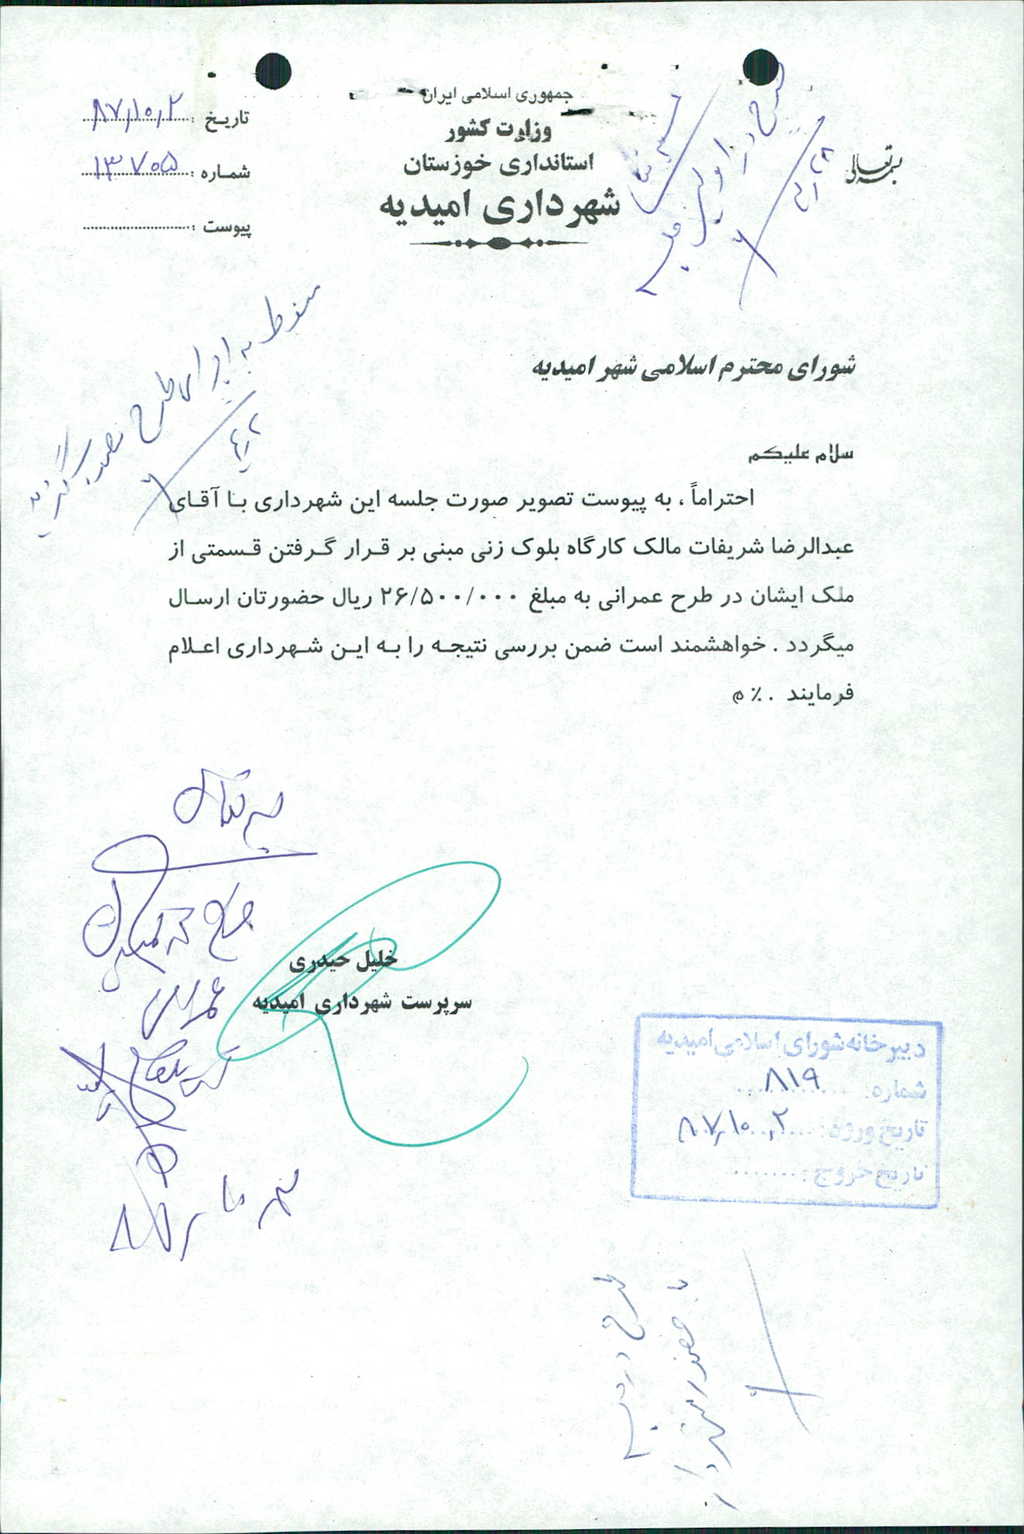 بسمه تعالی
جمهوری اسلامی ایران
وزارت کشور
استانداری خوزستان
شهرداری امیدیه
تاریخ : ۸۷٫۱۰٫۲
شماره : ۱۳۷۰۵
پیوست :
شورای محترم اسلامی شهر امیدیه
منوط به اجرای طرح تصویب گردید
سلام علیکم
احتراماً ، به پیوست تصویر صورت جلسه این شهرداری با آقای
عبدالرضا شریفات مالک کارگاه بلوک زنی مبنی بر قرار گرفتن قسمتی از
ملک ایشان در طرح عمرانی به مبلغ ۲۶/۵۰۰/۰۰۰ ریال حضورتان ارسال
میگردد . خواهشمند است ضمن بررسی نتیجه را به این شهرداری اعلام
فرمایند .٪ م
خلیل حیدری
سرپرست شهرداری امیدیه
دبیرخانه شورای اسلامی امیدیه
شماره: ۸۱۹
تاریخ ورود: ۸۷٫۱۰٫۲
تاریخ خروج:
طرح در
با حضور شهردار